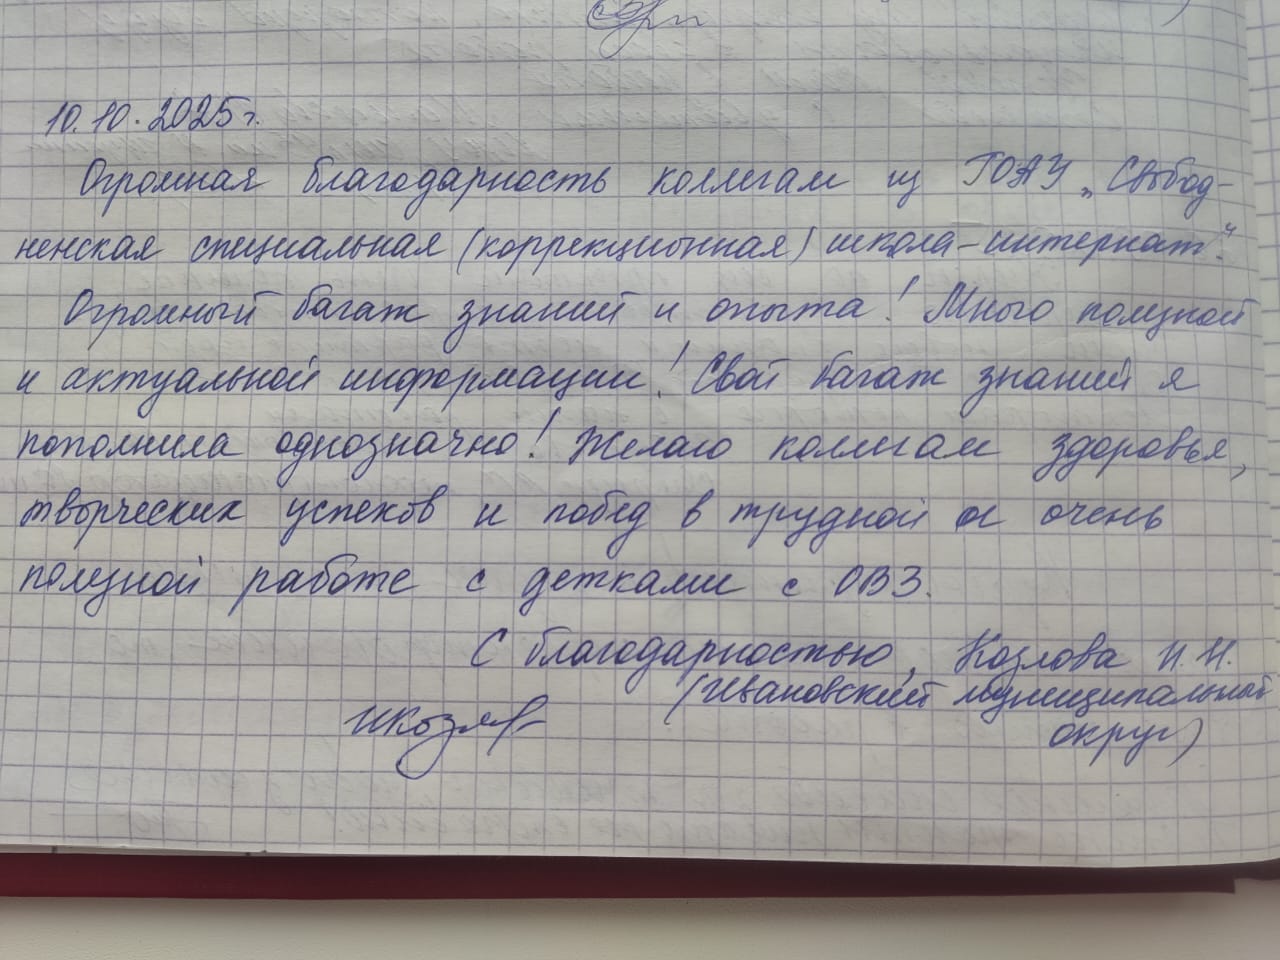 10.10.2025г.
Огромная благодарность коллегам из ГОАУ „Свобод-
ненская специальная (коррекционная) школа-интернат".
Огромный багаж знаний и опыта! Много полезной
и актуальной информации! Свой багаж знаний я
пополнила однозначно! Желаю коллегам здоровья,
творческих успехов и побед в трудной и очень
полезной работе с детками с ОВЗ.
С благодарностью, Козлова И.Н.
(Ивановский муниципальный
округ)